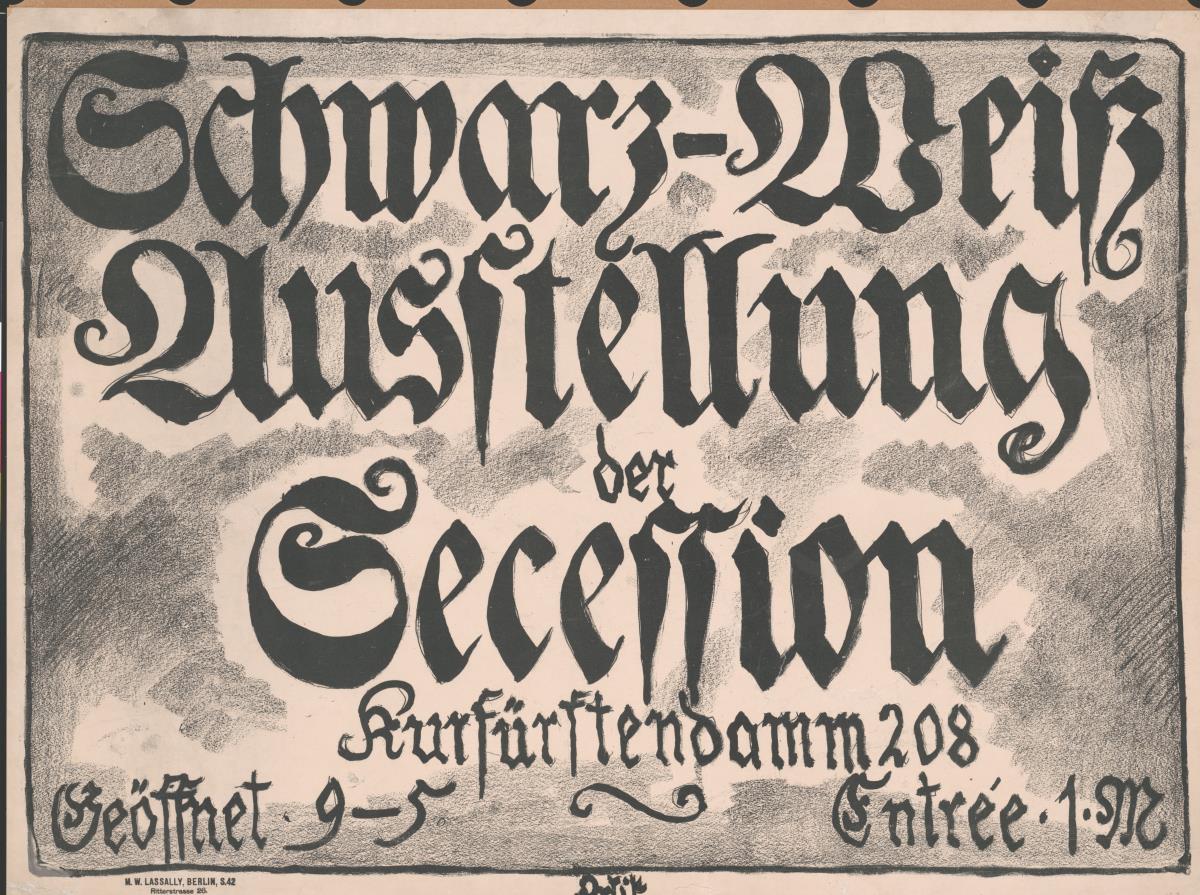 Schwarz-Weiß
Ausstellung
der
Secession
Kurfürstendamm 208
Geöffnet · 9–5 Entrée · 1·M
M. W. LASSALLY, BERLIN, S.42
Ritterstrasse 26.